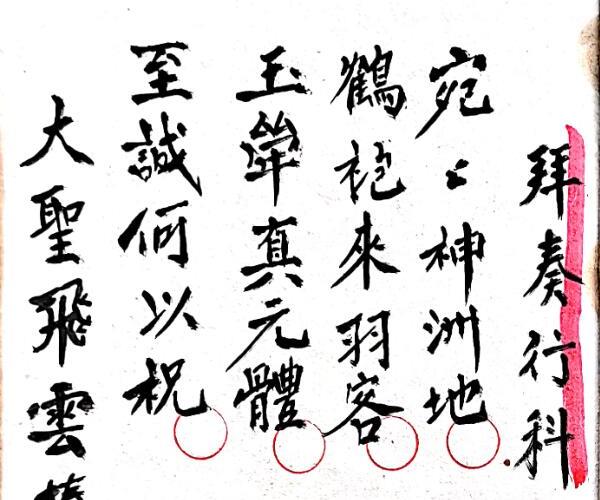 拜奏行科
宛〻神洲地
鶴袍來羽客
玉真元體
至誠何以祝
大聖飛雲